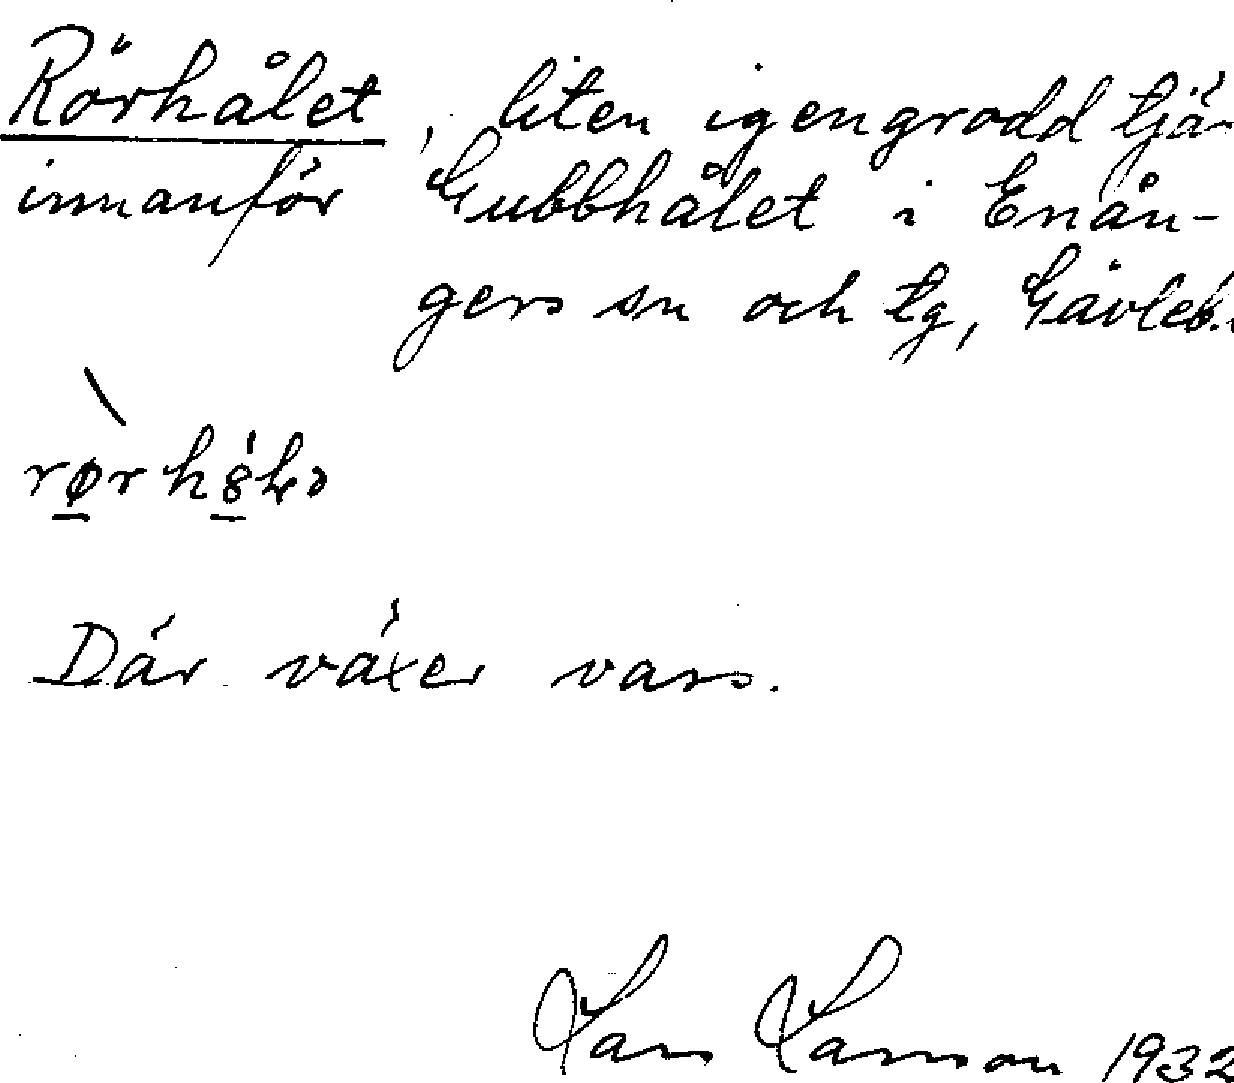 Rörhålet, liten igengrodd tjä
innanför Gubbhålet i Enån-
gers sn och tg, Gävleb.
Där växer vass.
Lars Larsson 1932